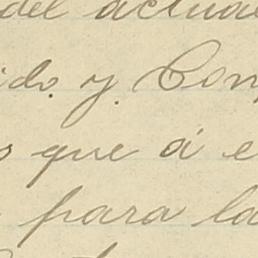 del actual
ido. y Con
s que á e
para la